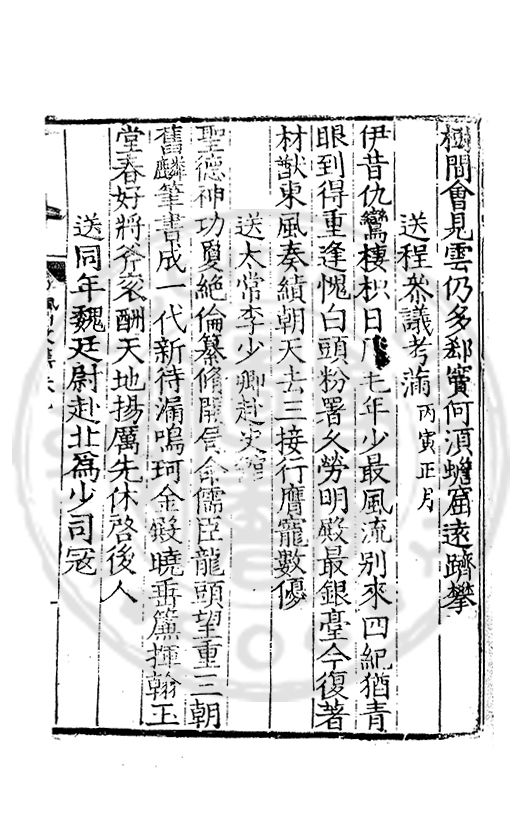 樹間會見雲仍多郄實何湏蟾窟遠躋攀
送程叅議考滿丙寅正月
伊昔仇鸞棲枳日 年少最風流别來四紀猶青
眼到得重逢愧白頭粉署久勞明殿最銀臺今復著
材猷東風奏績朝天去三接行膺寵數優
送太常李少卿赴史舘
聖德神功敻絶倫纂脩開舘命儒臣龍頭望重三朝
舊麟筆書成一代新待漏鳴珂金殿曉垂簾揮翰玉
堂春好將斧衮酬天地揚厲先休啓後人
送同年魏廷尉赴北爲少司冦